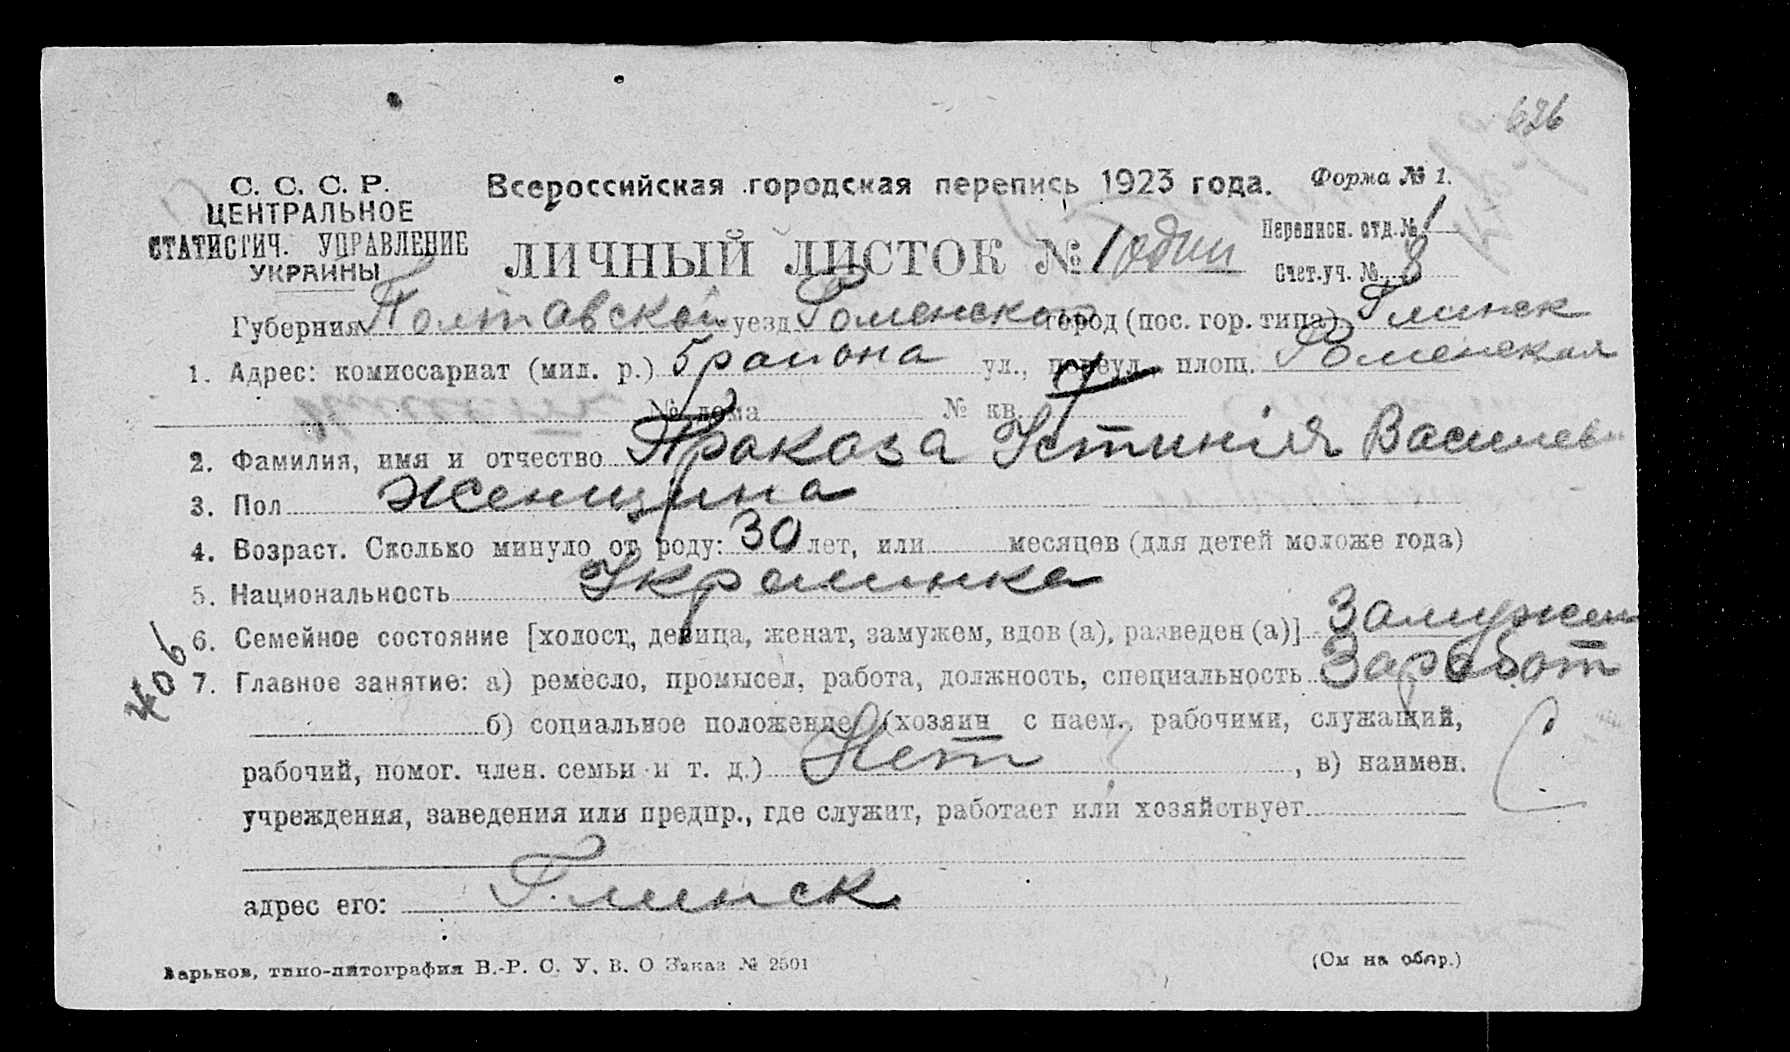 626
С. С. С. Р.
ЦЕНТРАЛЬНОЕ
СТАТИСТИЧ. УПРАВЛЕНИЕ
УКРАИНЫ
Всероссийская городская перепись 1923 года.
Форма № 1.
ЛИЧНЫЙ ЛИСТОК № 1 один
Переписн. отд. № 1
Счет. уч. № 8
Губерния Полтавской уезд Роменского город (пос. гор. типа) Глинск
1. Адрес: комиссариат (мил. р.) 5 района ул., переул., площ. Роменская
№ дома № кв.
2. Фамилия, имя и отчество Прокоза Устинія Василев
3. Пол Женщина
4. Возраст. Сколько минуло от роду: 30 лет, или месяцев (для детей моложе года)
5. Национальность Украинка
6. Семейное состояние [холост, девица, женат, замужем, вдов (а), разведен (а)] Замужем
406
7. Главное занятие: а) ремесло, промысел, работа, должность, специальность Заработ
б) социальное положение (хозяин с наем. рабочими, служащий,
рабочий, помог. член. семьи и т. д.) Нет , в) наимен.
учреждения, заведения или предпр., где служит, работает или хозяйствует
адрес его: Глинск
Харьков, типо-литография В.-Р. С. У. В. О Заказ № 2501
(См на обор.)